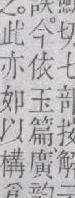 切七部按解
誤今依玉篇廣韵
之。此亦如以構